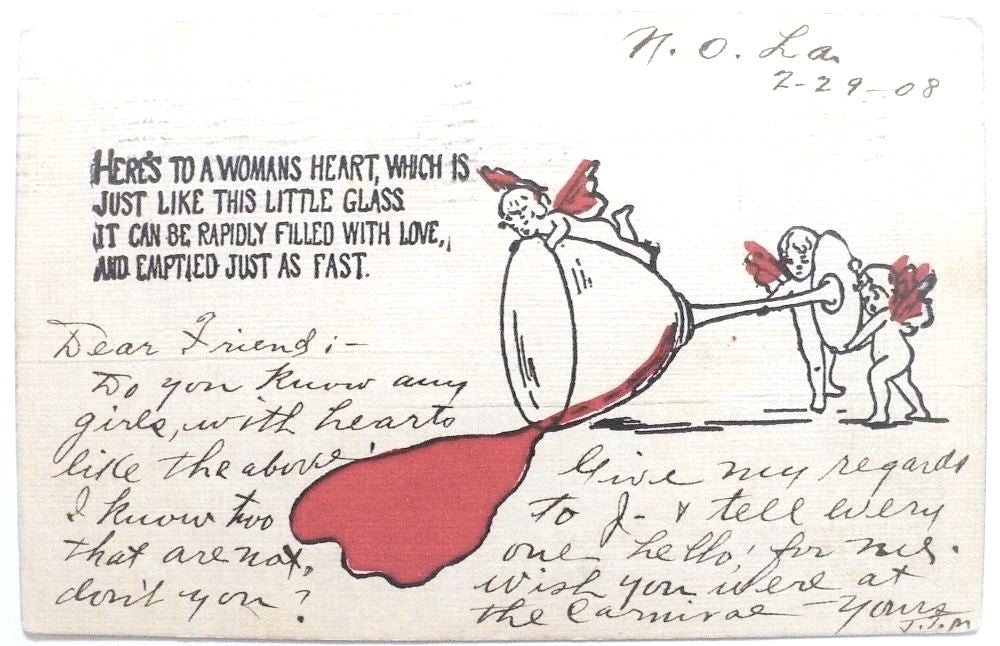 N. O. La.
2-29-08
HERE'S TO A WOMANS HEART, WHICH IS
JUST LIKE THIS LITTLE GLASS
IT CAN BE RAPIDLY FILLED WITH LOVE,
AND EMPTIED JUST AS FAST.
Dear Friend:-
Do you know any
girls, with hearts
like the above?
I know two
that are not,
don't you?
Give my regards
to J- & tell every
one "hello" for me.
Wish you were at
the Carnival - Yours
J.J.M